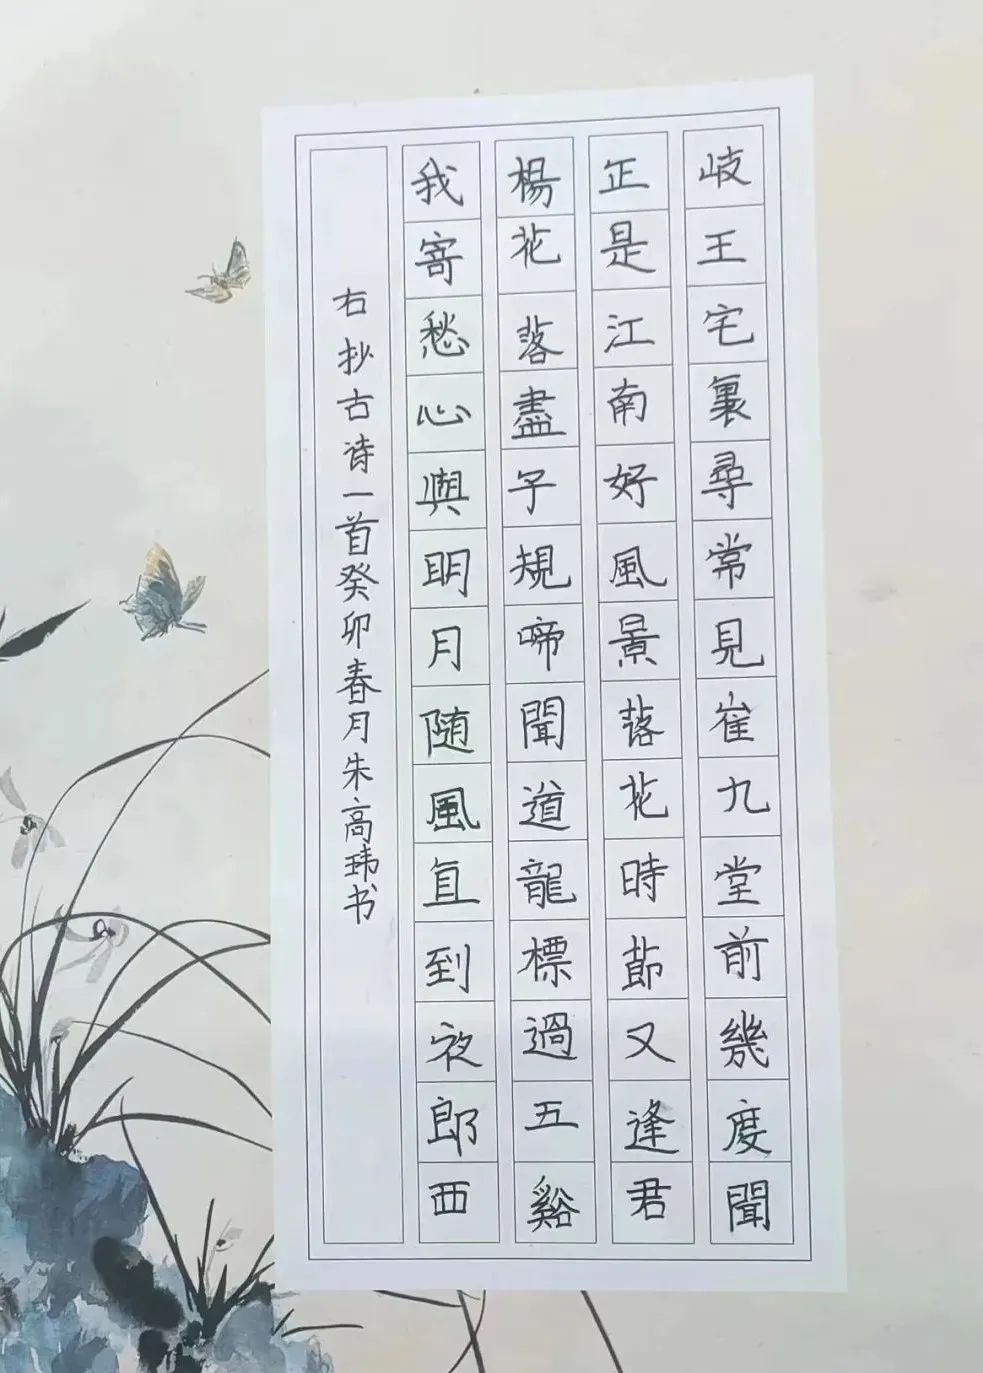 岐王宅裏尋常見崔九堂前幾度聞
正是江南好風景落花時節又逢君
楊花落盡子規啼聞道龍標過五谿
我寄愁心與明月随風直到夜郎西
右抄古诗一首癸卯春月朱高玮书